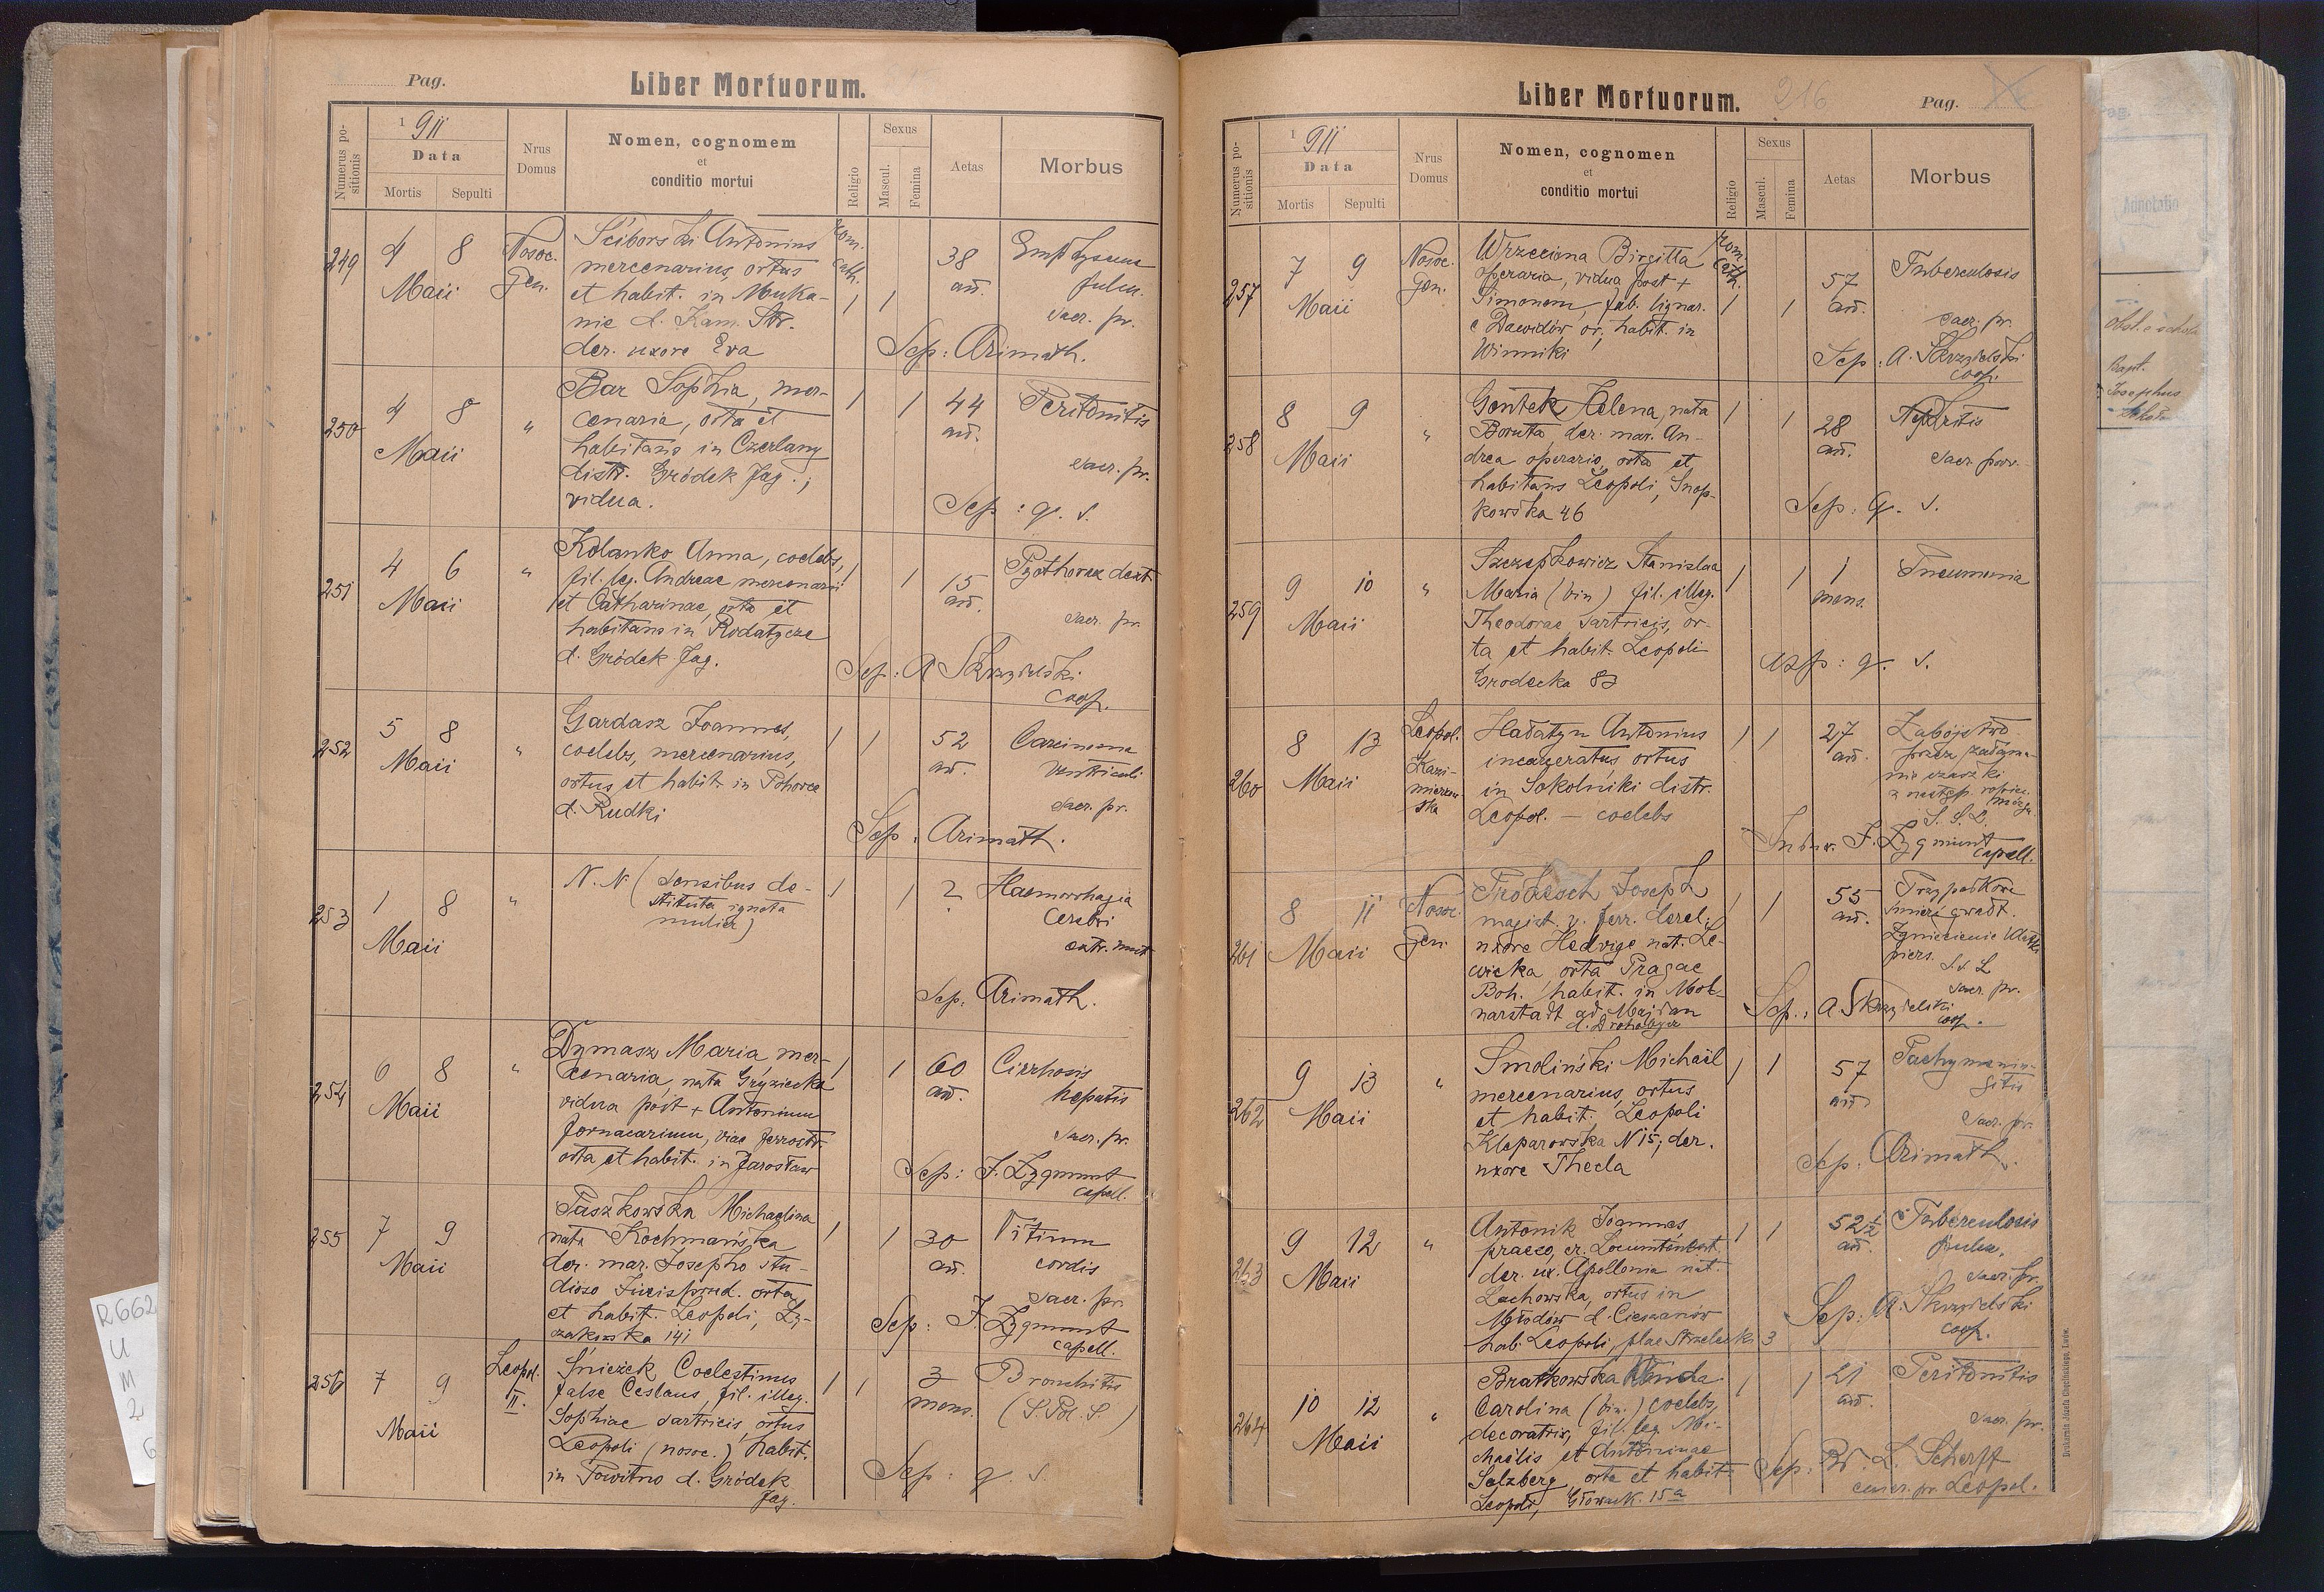 Pag.
Liber Mortuorum.
Numerus positionis
1911
Data
Mortis
Sepulti
Nrus Domus
Nomen, cognomem
et
conditio mortui
Religio
Sexus
Mascul.
Femina
Aetas
Morbus
249
4 8
Maii
Nosoc.
Gen.
Ściborski Antonius
mercenarius, ortus
et habit. in
d. Kam. Str.
der. uxore Eva
rom.
cath.
1 1
38
an.
pulm.
sacr. pr.
Sep: Arimath.
250
4 8
Maii
"
Bar Sophia, mer-
cenaria, orta et
habitans in Czerlany
distr. Gródek Jag.;
vidua.
1 1
44
an.
Peritonitis
sacr. pr.
Sep: q. s.
251
4 6
Maii
"
Kolanko Anna, coelebs,
fil. leg. Andreae mercenarii
et Catharinae, orta et
habitans in Rodatycze
d. Gródek Jag.
1 1
15
an.
Pyothorax dext.
sacr. pr.
Sep: A Skrzydelski
coop.
252
5 8
Maii
"
Gardasz Joannes,
coelebs, mercenarius,
ortus et habit. in Pohorce
d. Rudki
1 1
52
an.
Carcinoma
ventriculi
sacr. pr.
Sep: Arimath.
253
1 8
Maii
"
N. N. (sensibus de-
stituta ignota
mulier)
1 1
?
Haemorrhagia
cerebri
extr. unct.
Sep: Arimath.
254
6 8
Maii
"
Dymasz Maria mer-
cenaria, nata
vidua post + Antonium
fornacarium, viae ferrostr.
orta et habit. in Jarosław
1 1
60
an.
Cirrhosis
hepatis
sacr. pr.
Sep: J. Zygmunt
capell.
255
7 9
Maii
Paszkowska Michaelina
nata Kochmańska
der. mar. Josepho stu-
dioso Jurisprud. orta
et habit. Leopoli, Ły-
czakowska 141
1 1
30
an.
Vitium
cordis
sacr. pr.
Sep: J. Zygmunt
capell.
256
7 9
Maii
Leopol.
II.
Śnieżek Coelestinus
false Ceslaus, fil. illeg.
Sophiae sartricis, ortus
Leopoli (nosoc.) habit.
in Powitno d. Gródek
Jag.
1 1
3
mens.
Bronchitis
(S. Pol. S.)
Sep: q. s.
Liber Mortuorum.
216
Pag.
Numerus positionis
1911
Data
Mortis
Sepulti
Nrus Domus
Nomen, cognomen
et
conditio mortui
Religio
Sexus
Mascul.
Femina
Aetas
Morbus
257
7 9
Maii
Nosoc.
Gen.
Wrzeciona Birgitta
operaria, vidua post +
Simonem, fab. lignar.
e Dawidów or., habit. in
Winniki
rom.
cath.
1 1
57
an.
Tuberculosis
sacr. pr.
Sep: A. Skrzydelski
coop.
258
8 9
Maii
"
Gontek Helena, nata
Boruta, der. mar. An-
drea operario, orta et
habitans Leopoli, Snop-
kowska 46
1 1
28
an.
Nephritis
sacr. prov.
Sep: q. s.
259
9 10
Maii
"
Szczepkowicz Stanislaa
Maria (bin) fil. illeg.
Theodorae sartricis, or-
ta et habit. Leopoli
Grodecka 83
1 1
1
mens.
Pneumonia
asp: q. s.
260
8 13
Maii
Leopol.
Kazi-
mierzow-
ska
Hadatyn Antonius
incarceratus, ortus
in Sokolniki distr.
Leopol. — coelebs
1 1
27
an.
Zabójstwo
przez
czaszki
z następ.
mózgu
S. S. L.
J. Zygmunt
capell.
261
8 11
Maii
Nosoc.
Gen.
Joseph
magist. v. ferr. derel.
uxore Hedvige nat. Le-
wicka orta Pragae
Boh. habit. in Mol-
narstadt ad Majdan
d. Drohobycz
1 1
55
an.
Przypadkowa
śmierć gwałt.
Zgniecenie klatki
piers.
S. S. L
sacr. pr.
Sep.: A. Skrzydelski
coop.
262
9 13
Maii
"
Smoliński Michaël
mercenarius, ortus
et habit. Leopoli
Kleparowska N 15; der.
uxore Thecla
1 1
57
an.
Pachymenin-
gitis
sacr. pr.
Sep: Arimath.
263
9 12
Maii
"
Antonik Joannes,
praeco, cr. Locumtenent.
der. ux. Apollonia nat.
Lachowska, ortus in
Młodów d. Cieszanów
hab. Leopoli, plac Strzelecki 3
1 1
52½
an.
Tuberculosis
pulm.
sacr. pr.
Sep: A. Skrzydelski
coop.
264
10 12
Maii
"
Bratkowska Wanda
Carolina (bin.) coelebs,
decoratrix, fil. leg. Mi-
chaëlis et Antoninae
Salzberg, orta et habit.
Leopoli, Głowack. 15a
1 1
21
an.
Peritonitis
sacr. pr.
Sep: L. Scherff
Leopol.
Drukarnia Józefa Chęcińskiego, Lwów.
Annotatio
Bapt.
Josephus
R662
U
M
2
6